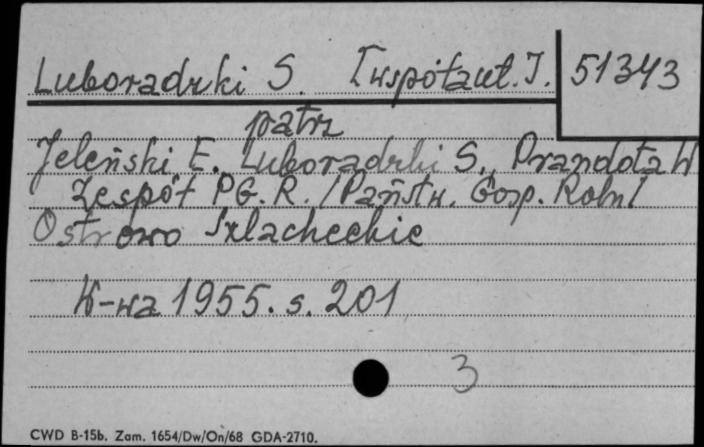 Luboradzki S. [współaut.]. 51343
patrz
Jeleński E. Luboradzki S., Prandota W
Zespół P.G.R. /Państw. Gosp. Roln/
Ostrowo Szlacheckie
W-wa 1955. s. 201
3
CWD B-15b. Zam. 1654/Dw/On/68 GDA-2710.